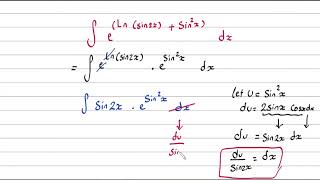 ∫ e^(Ln (sin2x) + Sin²x) dx
= ∫ e^Ln(sin2x) · e^Sin²x dx
∫ Sin2x · e^Sin²x dx
let U = Sin²x
du = 2sinx cosx dx
du = sin2x dx
du/sin2x = dx
du/sin